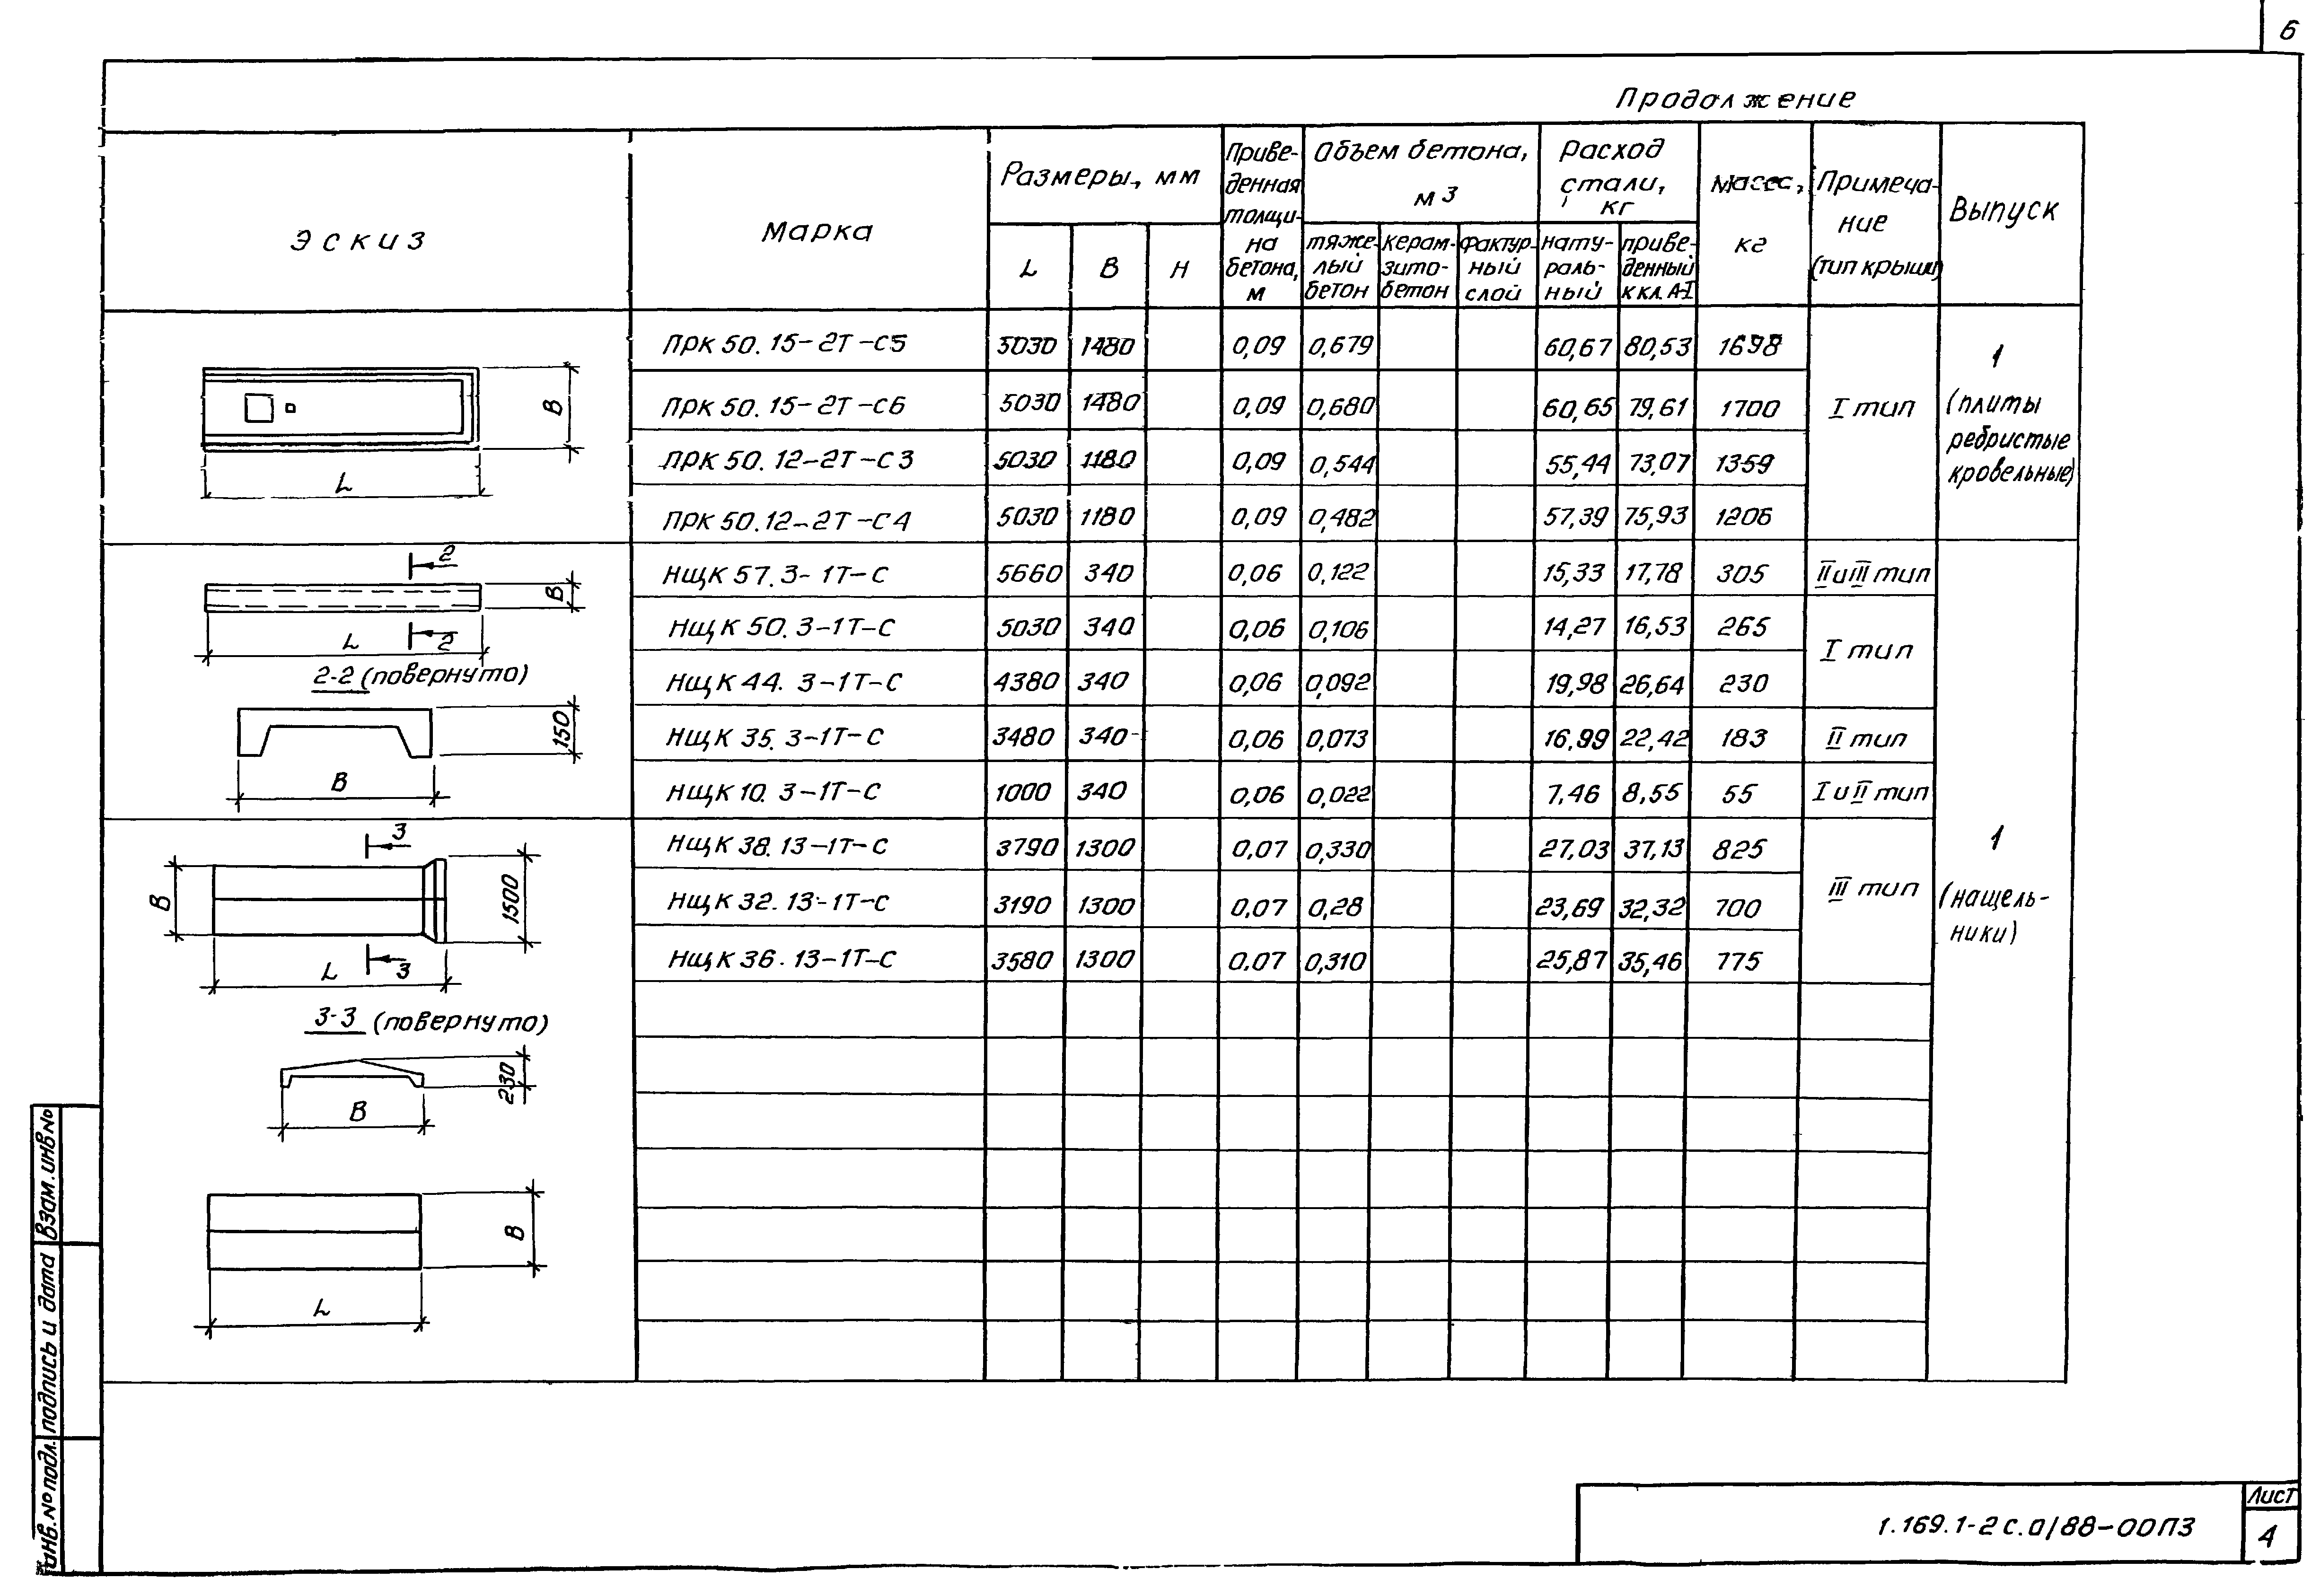 6
Продолжение
Эскиз
Марка
Размеры, мм
L
В
Н
Приве-
денная
толщи-
на
бетона,
м
Объем бетона,
м3
тяже-
лый
бетон
керам-
зито-
бетон
фактур-
ный
слой
Расход
стали,
кг
нату-
раль-
ный
приве-
денный
к кл. А-I
Масса,
кг
Примеча-
ние
(тип крыши)
Выпуск
Прк 50.15-2Т-С5 5030 1480 0,09 0,679 60,67 80,53 1698
Прк 50.15-2Т-С6 5030 1480 0,09 0,680 60,65 79,61 1700
Прк 50.12-2Т-С3 5030 1180 0,09 0,544 55,44 73,07 1359
Прк 50.12-2Т-С4 5030 1180 0,09 0,482 57,39 75,93 1206
I тип
1
(плиты
ребристые
кровельные)
В
L
НщК 57.3-1Т-С 5660 340 0,06 0,122 15,33 17,78 305 II и III тип
НщК 50.3-1Т-С 5030 340 0,06 0,106 14,27 16,53 265
НщК 44.3-1Т-С 4380 340 0,06 0,092 19,98 26,64 230
I тип
НщК 35.3-1Т-С 3480 340 0,06 0,073 16,99 22,42 183 II тип
НщК 10.3-1Т-С 1000 340 0,06 0,022 7,46 8,55 55 I и II тип
2
В
L
2
2-2 (повернуто)
150
В
НщК 38.13-1Т-С 3790 1300 0,07 0,330 27,03 37,13 825
НщК 32.13-1Т-С 3190 1300 0,07 0,28 23,69 32,32 700
НщК 36.13-1Т-С 3580 1300 0,07 0,310 25,87 35,46 775
III тип
1
(нащель-
ники)
3
В
1500
L
3
3-3 (повернуто)
230
В
В
L
Взам. инв №
Подпись и дата
Инв. № подл.
1.169.1-2с.0/88-00ПЗ
Лист
4